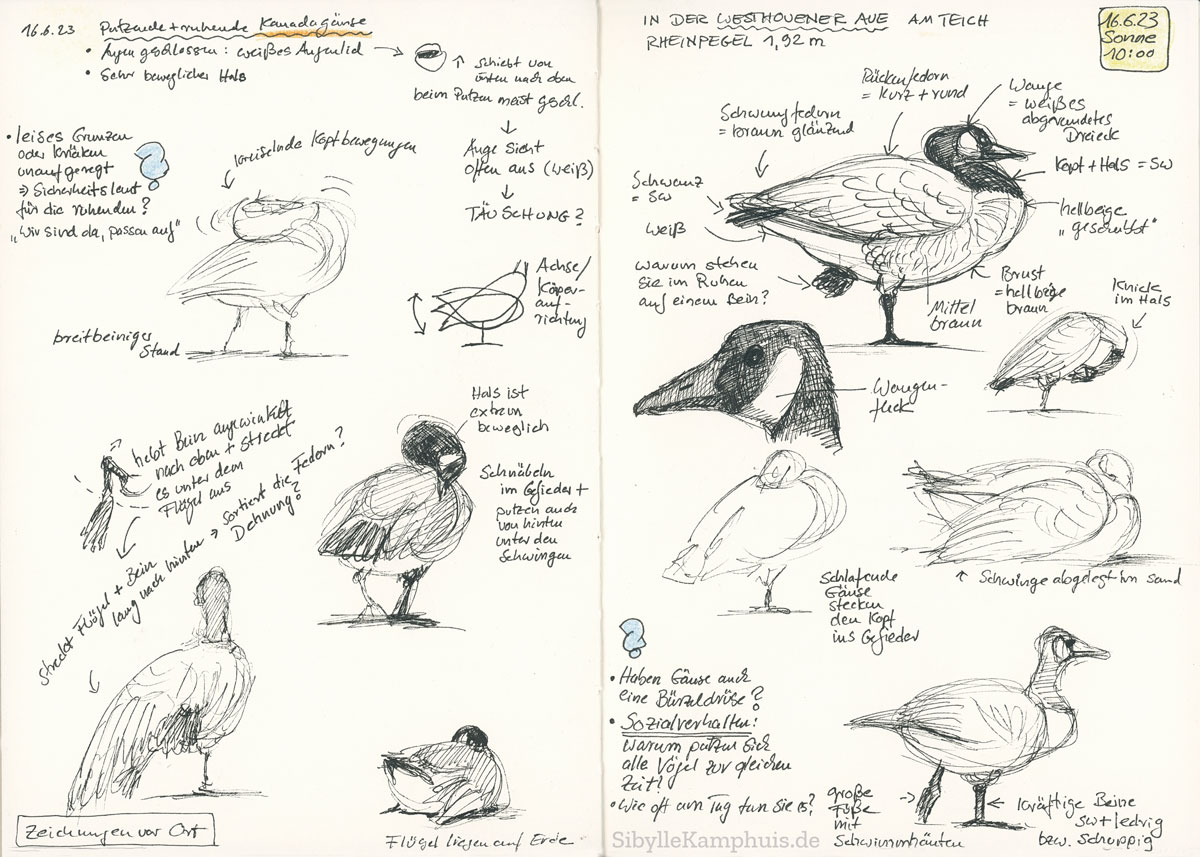 16.6.23 Putzende + ruhende Kanadagänse
• Augen geschlossen: weißes Augenlid
• Sehr beweglicher Hals
↑ schiebt von
unten nach oben
beim Putzen meist geschl.
Auge sieht
offen aus (weiß)
TÄUSCHUNG?
• leises Grunzen
oder Krächzen
unaufgeregt
⇒ Sicherheitslaut
für die ruhenden?
„Wir sind da, passen auf"
kreiselnde Kopfbewegungen
breitbeiniger
Stand
Achse/
Körper-
auf-
richtung
hebt Bein angewinkelt
nach oben + streckt
es unter dem
Flügel aus
streckt Flügel + Bein
lang nach hinten ⇒ sortiert die Federn?
Dehnung?
Hals ist
extrem
beweglich
Schnäbeln
im Gefieder +
putzen auch
von hinten
unter den
Schwingen
Zeichnungen vor Ort
Flügel liegen auf Erde
IN DER WESTHOVENER AUE AM TEICH
RHEINPEGEL 1,92 m
16.6.23
Sonne
10:00
Rückenfedern
= kurz + rund
Wange
= weißes
abgerundetes
Dreieck
Schwungfedern
= braun glänzend
Kopf + Hals = sw
Schwanz
= sw
hellbeige
„geschuppt"
weiß
warum stehen
sie im Ruhen
auf einem Bein?
Mittel
braun
Brust
= hellbeige
braun
Knick
im Hals
Wangen-
fleck
Schlafende
Gänse
stecken
den Kopf
ins Gefieder
↑ Schwinge abgelegt im Sand
• Haben Gänse auch
eine Bürzeldrüse?
• Sozialverhalten:
warum putzen sich
alle Vögel zur gleichen
Zeit?
• Wie oft am Tag tun sie es?
große
Füße
mit
Schwimmhäuten
kräftige Beine
sw + ledrig
bzw. schuppig
SibylleKamphuis.de